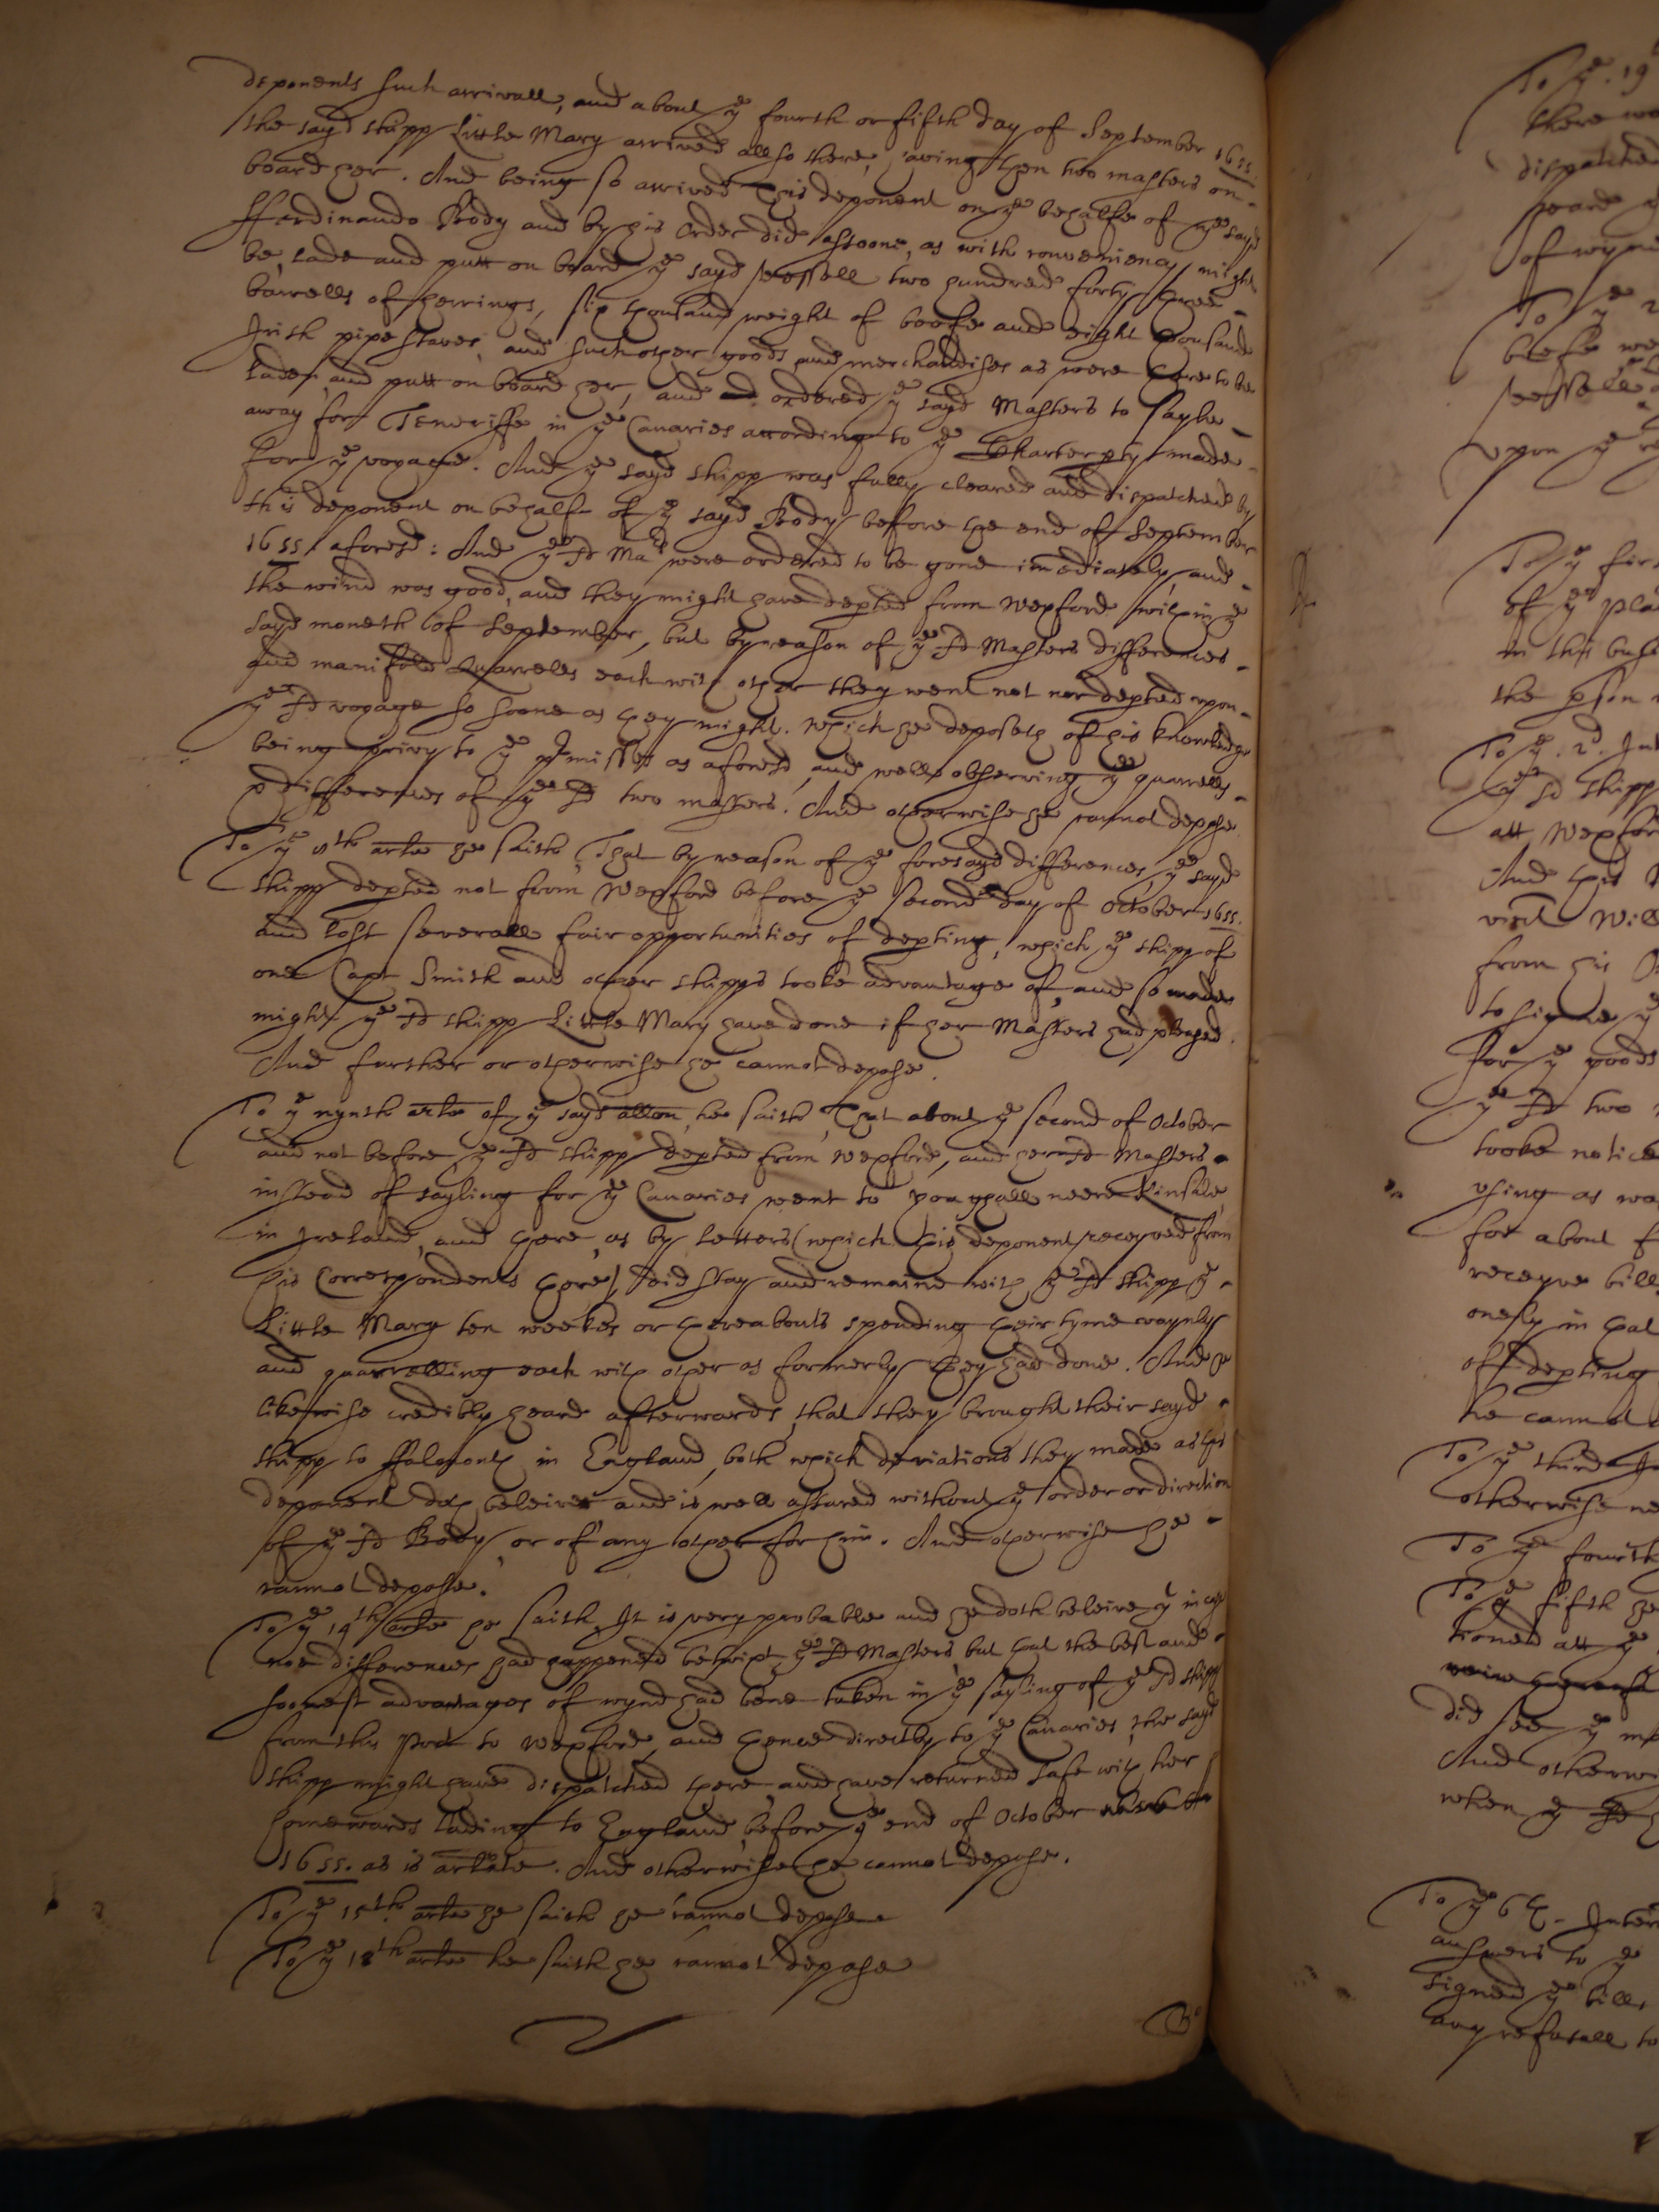 deponents such arrivall, and about ye fourth or fifth day of September 1655.
the sayd shipp Little Mary arrived allso there, having then two masters on
board her. And being so arrived this deponent on ye behalfe of ye sayd
Ferdinando Body and by his order did assoone, as with conveniency might
be, lade and putt on board ye sayd vessell two hundred forty three
barrells of herrings, six thousand weight of beefe and eight thousand
Irish pipe staves, and such other goods and merchandises as were there to be
laden and putt on board her, and ordered ye sayd Masters to sayle
away for Teneriffe in ye Canaries according to ye Charter pty made
for ye voyage. And ye sayd shipp was fully cleared and dispatched by
this deponent on behalfe of ye sayd Body before the end of September
1655. aforesd: And ye sd Mars were ordered to be gone imediately and
the wind was good, and they might have depted from Wexford within ye
sayd moneth of September, but by reason of ye sd Masters differences
and manifold Quarrells each with other they went not nor depted upon
ye sd voyage so soone as they might. Which he deposeth of his knowledge
being privy to ye pmisses as aforesd, and well observing ye quarrells
& differences of ye sd two masters. And otherwise he cannot depose.
To ye 8th arle he saith, That by reason of ye foresayd differences, ye sayd
shipp depted not from Wexford before ye second day of October 1655.
and lost severall fair opportunities of depting, which ye shipp of
one Capt Smith and other shipps tooke advantage of, and so made
might ye sd shipp Little Mary have done if her Masters had pleased.
And further or otherwise he cannot depose.
To ye nynth arle of ye sayd allon he saith, That about ye second of October
and not before ye sd shipp depted from Wexford, and her sd Masters
instead of sayling for ye Canaries went to Youghall neere Kinsale
in Ireland, and there, as by letters (which this deponent receyved from
his Correspondents there) did stay and remaine with ye sd shipp ye
Little Mary ten weekes or thereabouts spending their tyme vaynly
and quarrelling each with other as formerly they had done. And he
likewise credibly heard afterwards, that they brought their sayd
shipp to Falmouth in England, both which deviations they made as this
deponent doth beleive and is well assured without ye order or direction
of ye sd Body, or of any other for him. And otherwise he
cannot depose.
To ye 14th arle he saith, It is very probable and he doth beleive yt in case
noe differences had happened betwixt ye sd Masters but that the best and
soonest advantages of wynd had bene taken in ye sayling of ye sd shipp
from this Port to Wexford, and thence directly to ye Canaries, the sayd
shipp might have dispatched there, and have returned safe with her
homewards lading to England before ye end of October
1655. as is arlate. And otherwise he cannot depose.
To ye 15th. arle he saith he cannot depose
To ye 18th arle he saith he cannot depose
To ye. 19
there
dispatched
heard
of wynd
To ye 2
beefe
vessell
upon ye
To ye first
of ye pla
in this
the pson
To ye. 2d. Int
ye sd shipp
att Wexford
And this
vizt Will
from his
to signe ye
for ye goods
ye sd two
tooke notice
using as
for about
receyve bill
onely in that
of depting
he cannot
To ye third In
otherwise
To ye fourth
To ye fifth he
tioned att ye
did see ye
And otherwi
when ye sd
To ye 6th. Inter
answers to ye
signed ye bill
any refusall to